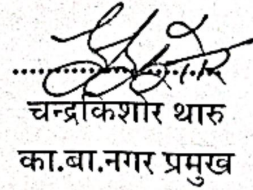 चन्द्रकिशोर थारु
का.बा.नगर प्रमुख